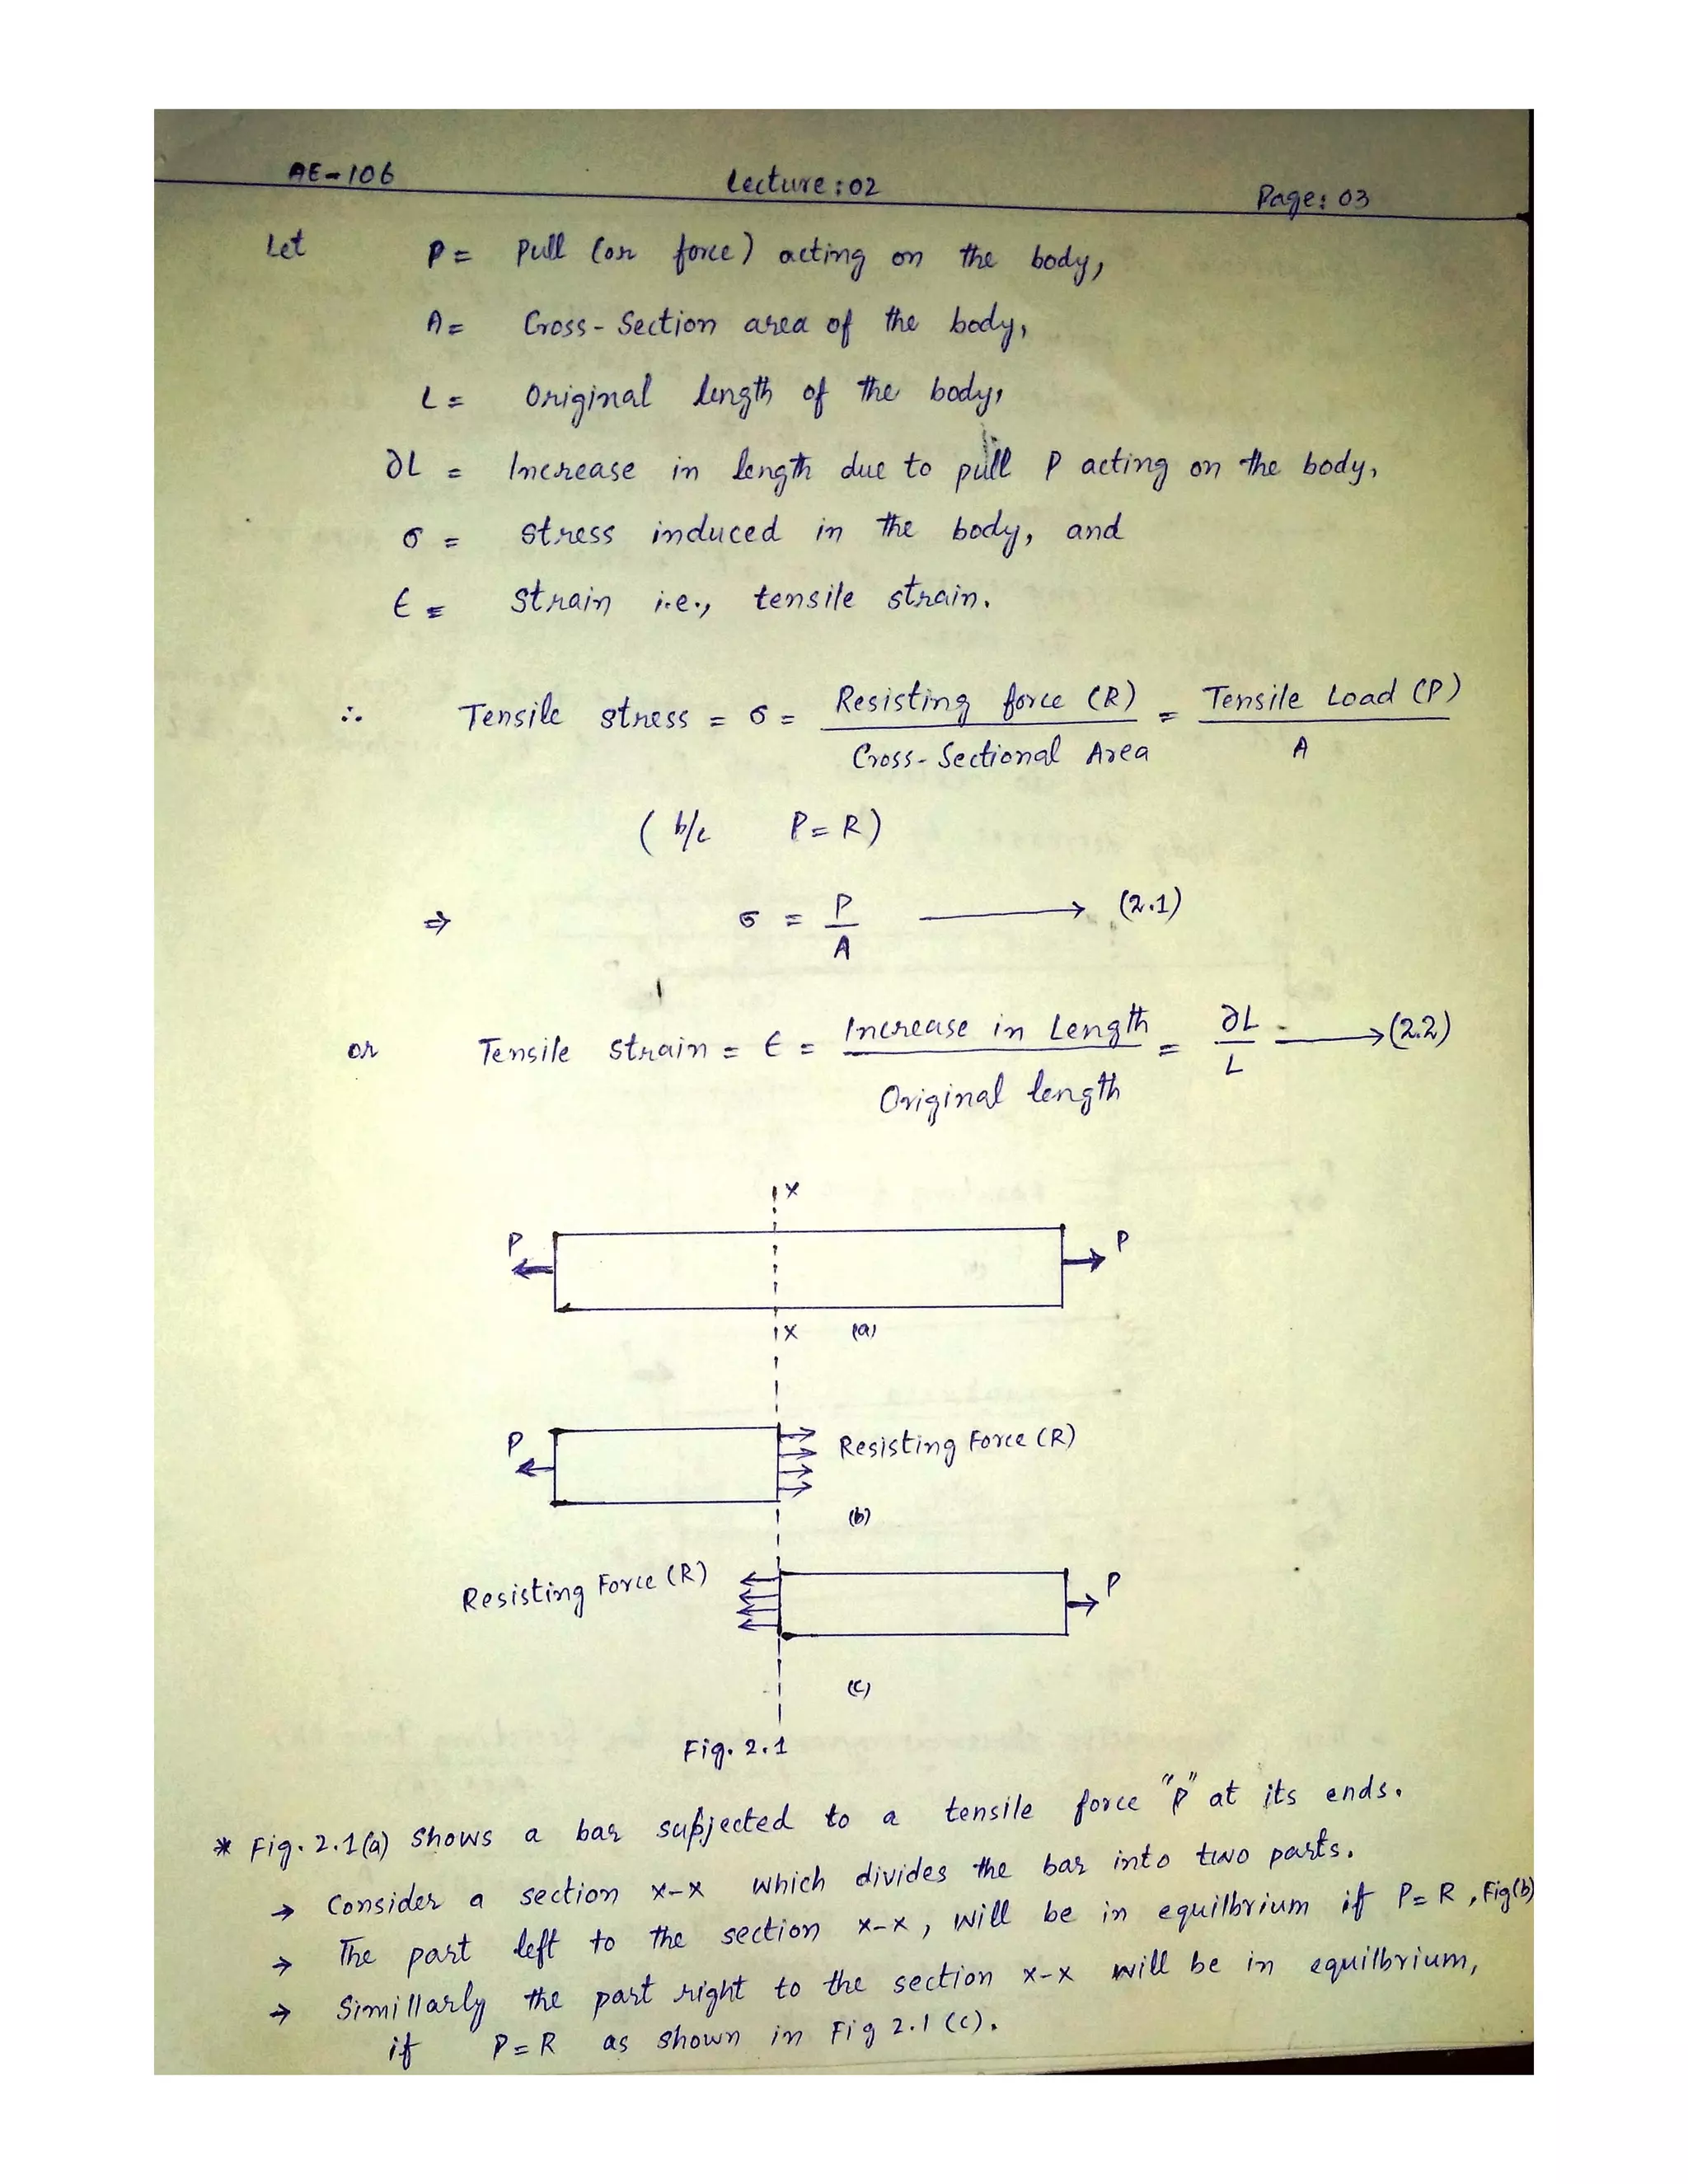 AE-106 Lecture:02 Page: 03
Let P = Pull (or force) acting on the body,
A = Cross-Section area of the body,
L = Original length of the body,
∂L = Increase in length due to pull P acting on the body,
σ = Stress induced in the body, and
ϵ = Strain i.e., tensile strain.
∴ Tensile stress = σ = Resisting force (R) / Cross-Sectional Area = Tensile Load (P) / A
( b/c P = R )
⇒ σ = P / A ⟶ (2.1)
or Tensile Strain = ϵ = Increase in Length / Original length = ∂L / L ⟶ (2.2)
X
P P
X (a)
P Resisting Force (R)
(b)
Resisting Force (R) P
(c)
Fig. 2.1
* Fig. 2.1(a) Shows a bar subjected to a tensile force "P" at its ends.
→ Consider a section X-X which divides the bar into two parts.
→ The part left to the section X-X, will be in equilbrium if P = R, Fig(b)
→ Simillarly the part right to the section X-X will be in equilbrium,
if P = R as shown in Fig 2.1 (c).